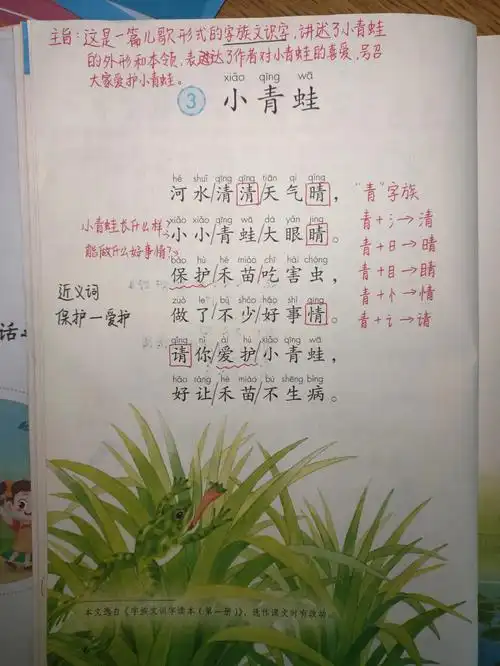 主旨：这是一篇儿歌形式的字族文识字，讲述了小青蛙
的外形和本领，表达了作者对小青蛙的喜爱，号召
大家爱护小青蛙。
xiǎo qīng wā
3 小青蛙
hé shuǐ qīng qīng tiān qì qíng
河水/清清/天气晴，
"青"字族
青+氵→清
小青蛙长什么样？
xiǎo xiǎo qīng wā dà yǎn jīng
小小/青蛙/大眼睛。
青+日→晴
能做什么好事情？
bǎo hù hé miáo chī hài chóng
保护/禾苗/吃害虫，
青+目→睛
近义词
保护—爱护
zuò le bù shǎo hǎo shì qing
做了/不少/好事情。
青+忄→情
青+讠→请
qǐng nǐ ài hù xiǎo qīng wā
请你/爱护/小青蛙，
hǎo ràng hé miáo bù shēng bìng
好让/禾苗/不生病。
话
本文选自《字族文识字读本（第一册）》，选作课文时有改动。